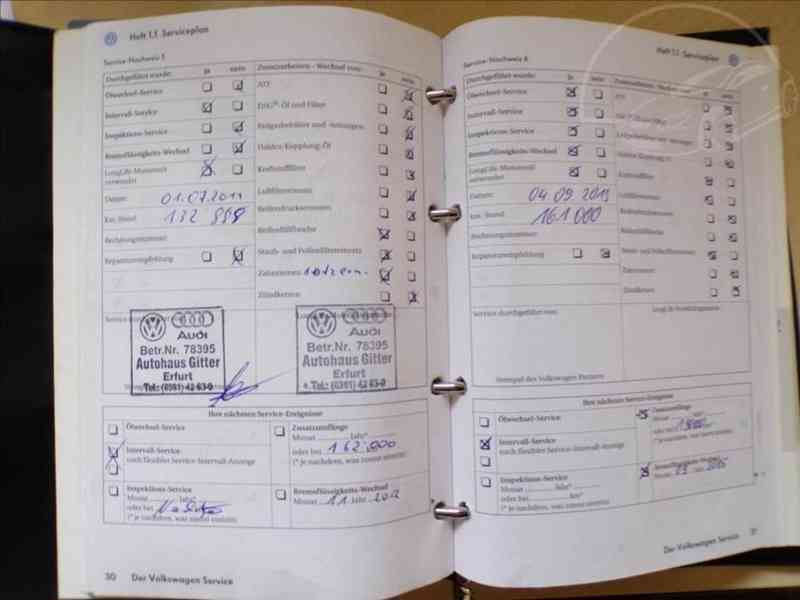 Heft 1.1 Serviceplan
Service-Nachweis 5
Durchgeführt wurde: ja nein
Ölwechsel-Service
Intervall-Service
Inspektions-Service
Bremsflüssigkeits-Wechsel
LongLife-Motoröl
verwendet
Datum: 01.07.2011
km-Stand: 132 888
Rechnungsnummer:
Reparaturempfehlung
Zusatzarbeiten - Wechsel von: ja nein
ATF
DSG®-Öl und Filter
Haldex-Kupplung-Öl
Kraftstofffilter
Luftfiltereinsatz
Reifendrucksensoren
Reifenfüllflasche
Staub- und Pollenfiltereinsatz
Zahnriemen
Zündkerzen
Audi
Betr.Nr. 78395
Autohaus Gitter
Erfurt
Tel.: (0361) 42 63-0
Audi
Betr.Nr. 78395
Autohaus Gitter
Erfurt
Tel.: (0361) 42 63-0
Ihre nächsten Service-Ereignisse
Ölwechsel-Service
Intervall-Service
nach flexibler Service-Intervall-Anzeige
Inspektions-Service
Monat Jahr*
oder bei
(* je nachdem, was zuerst eintritt)
Zusatzumfänge
Monat Jahr*
oder bei 162 000
(* je nachdem, was zuerst eintritt)
Bremsflüssigkeits-Wechsel
Monat 11 Jahr 2012
30 Der Volkswagen Service
Heft 1.1 Serviceplan
Service-Nachweis 6
Durchgeführt wurde: ja nein
Ölwechsel-Service
Intervall-Service
Inspektions-Service
Bremsflüssigkeits-Wechsel
LongLife-Motoröl
verwendet
Datum: 04 09 2013
km-Stand: 161 000
Rechnungsnummer:
Reparaturempfehlung
ATF
Haldex-Kupplung-Öl
Kraftstofffilter
Luftfiltereinsatz
Reifendrucksensoren
Reifenfüllflasche
Staub- und Pollenfiltereinsatz
Zahnriemen
Zündkerzen
Service durchgeführt von:
Stempel des Volkswagen Partners
Ihre nächsten Service-Ereignisse
Ölwechsel-Service
Intervall-Service
nach flexibler Service-Intervall-Anzeige
Inspektions-Service
Monat Jahr*
oder bei km*
(* je nachdem, was zuerst eintritt)
Zusatzumfänge
Monat Jahr*
oder bei
(* je nachdem, was zuerst eintritt)
Bremsflüssigkeits-Wechsel
Der Volkswagen Service 31